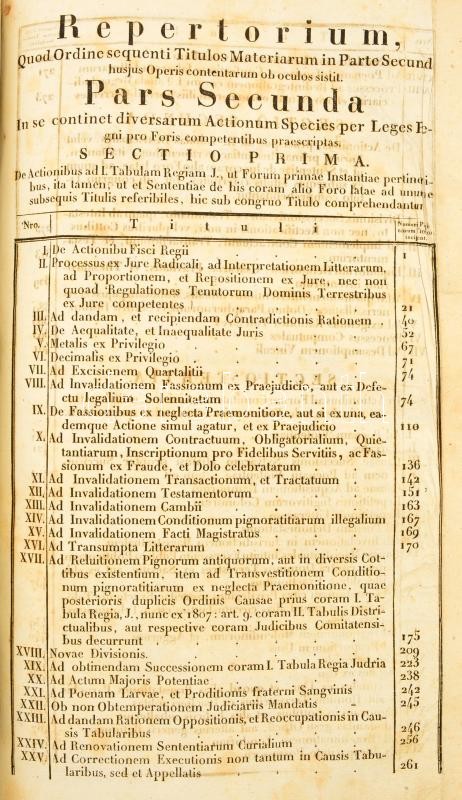 Repertorium,
Quod Ordine sequenti Titulos Materiarum in Parte Secund
husjus Operis contentarum ob oculos sistit.
Pars Secunda
In se continet diversarum Actionum Species per Leges Re-
gni pro Foris competentibus praescriptas.
SECTIO PRIMA.
De Actionibus ad I. Tabulam Regiam J., ut Forum primae Instantiae pertinen-
bus, ita tamen, ut et Sententiae de his coram alio Foro latae ad unum e
subsequis Titulis referibiles, hic sub congruo Titulo comprehendantur
Nro. Tituli
I. De Actionibu Fisci Regii 1
II. Processus ex Jure Radicali, ad Interpretationem Litterarum,
ad Proportionem, et Repositionem ex Jure, nec non
quoad Regulationes Tenutorum Dominis Terrestribus
ex Jure competentes 21
III. Ad dandam, et recipiendam Contradictionis Rationem 40
IV. De Aequalitate, et Inaequalitate Juris 52
V. Metalis ex Privilegio 67
VI. Decimalis ex Privilegio 71
VII. Ad Excisionem Quartalitii 74
VIII. Ad Invalidationem Fassionum ex Praejudicio, aut ex Defe-
ctu legalium Solennitatum 74
IX. De Fassionibus ex neglecta Praemonitione, aut si ex una, ea-
demque Actione simul agatur, et ex Praejudicio 110
X. Ad Invalidationem Contractuum, Obligatorialium, Quie-
tantiarum, Inscriptionum pro Fidelibus Servitiis, ac Fas-
sionum ex Fraude, et Dolo celebratarum 136
XI. Ad Invalidationem Transactionum, et Tractatuum 142
XII. Ad Invalidationem Testamentorum 151
XIII. Ad Invalidationem Cambii 163
XIV. Ad Invalidationem Conditionum pignoratitiarum illegalium 167
XV. Ad Invalidationem Facti Magistratus 169
XVI. Ad Transumpta Litterarum 170
XVII. Ad Reluitionem Pignorum antiquorum, aut in diversis Cot-
tibus existentium, item ad Transvestitionem Conditio-
num pignoratitiarum ex neglecta Praemonitione, quae
posterioris duplicis Ordinis Causae prius coram I. Ta-
bula Regia, J., nunc ex 1807: art. 9. coram II. Tabulis Distri-
ctualibus, aut respective coram Judicibus Comitatensi-
bus decurrunt 175
XVIII. Novae Divisionis. 209
XIX. Ad obtinendam Successionem coram I. Tabula Regia Judria 223
XX. Ad Actum Majoris Potentiae 238
XXI. Ad Poenam Larvae, et Proditionis fraterni Sangvinis 242
XXII. Ob non Obtemperationem Judiciariis Mandatis 245
XXIII. Ad dandam Rationem Oppositionis, et Reoccupationis in Cau-
sis Tabularibus 246
XXIV. Ad Renovationem Sententiarum Curialium 256
XXV. Ad Correctionem Executionis non tantum in Causis Tabu-
laribus, sed et Appellatis 261